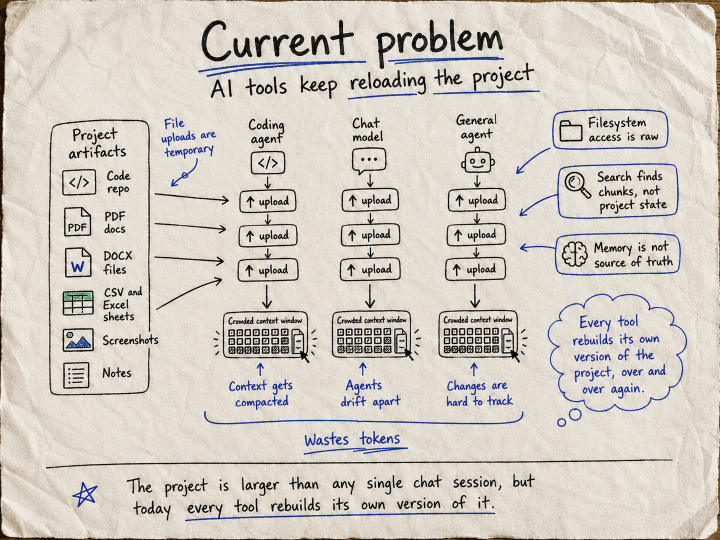 Current problem
AI tools keep reloading the project
Project
artifacts
</>
Code
repo
PDF
PDF
docs
W
DOCX
files
CSV and
Excel
sheets
Screenshots
Notes
File
uploads are
temporary
Coding
agent
</>
↑ upload
↑ upload
↑ upload
Crowded context window
Context gets
compacted
Chat
model
↑ upload
↑ upload
↑ upload
Crowded context window
Agents
drift apart
General
agent
↑ upload
↑ upload
↑ upload
Crowded context window
Changes are
hard to track
Wastes tokens
Filesystem
access is raw
Search finds
chunks, not
project state
Memory is not
source of truth
Every tool
rebuilds its own
version of the
project, over and
over again.
The project is larger than any single chat session, but
today every tool rebuilds its own version of it.